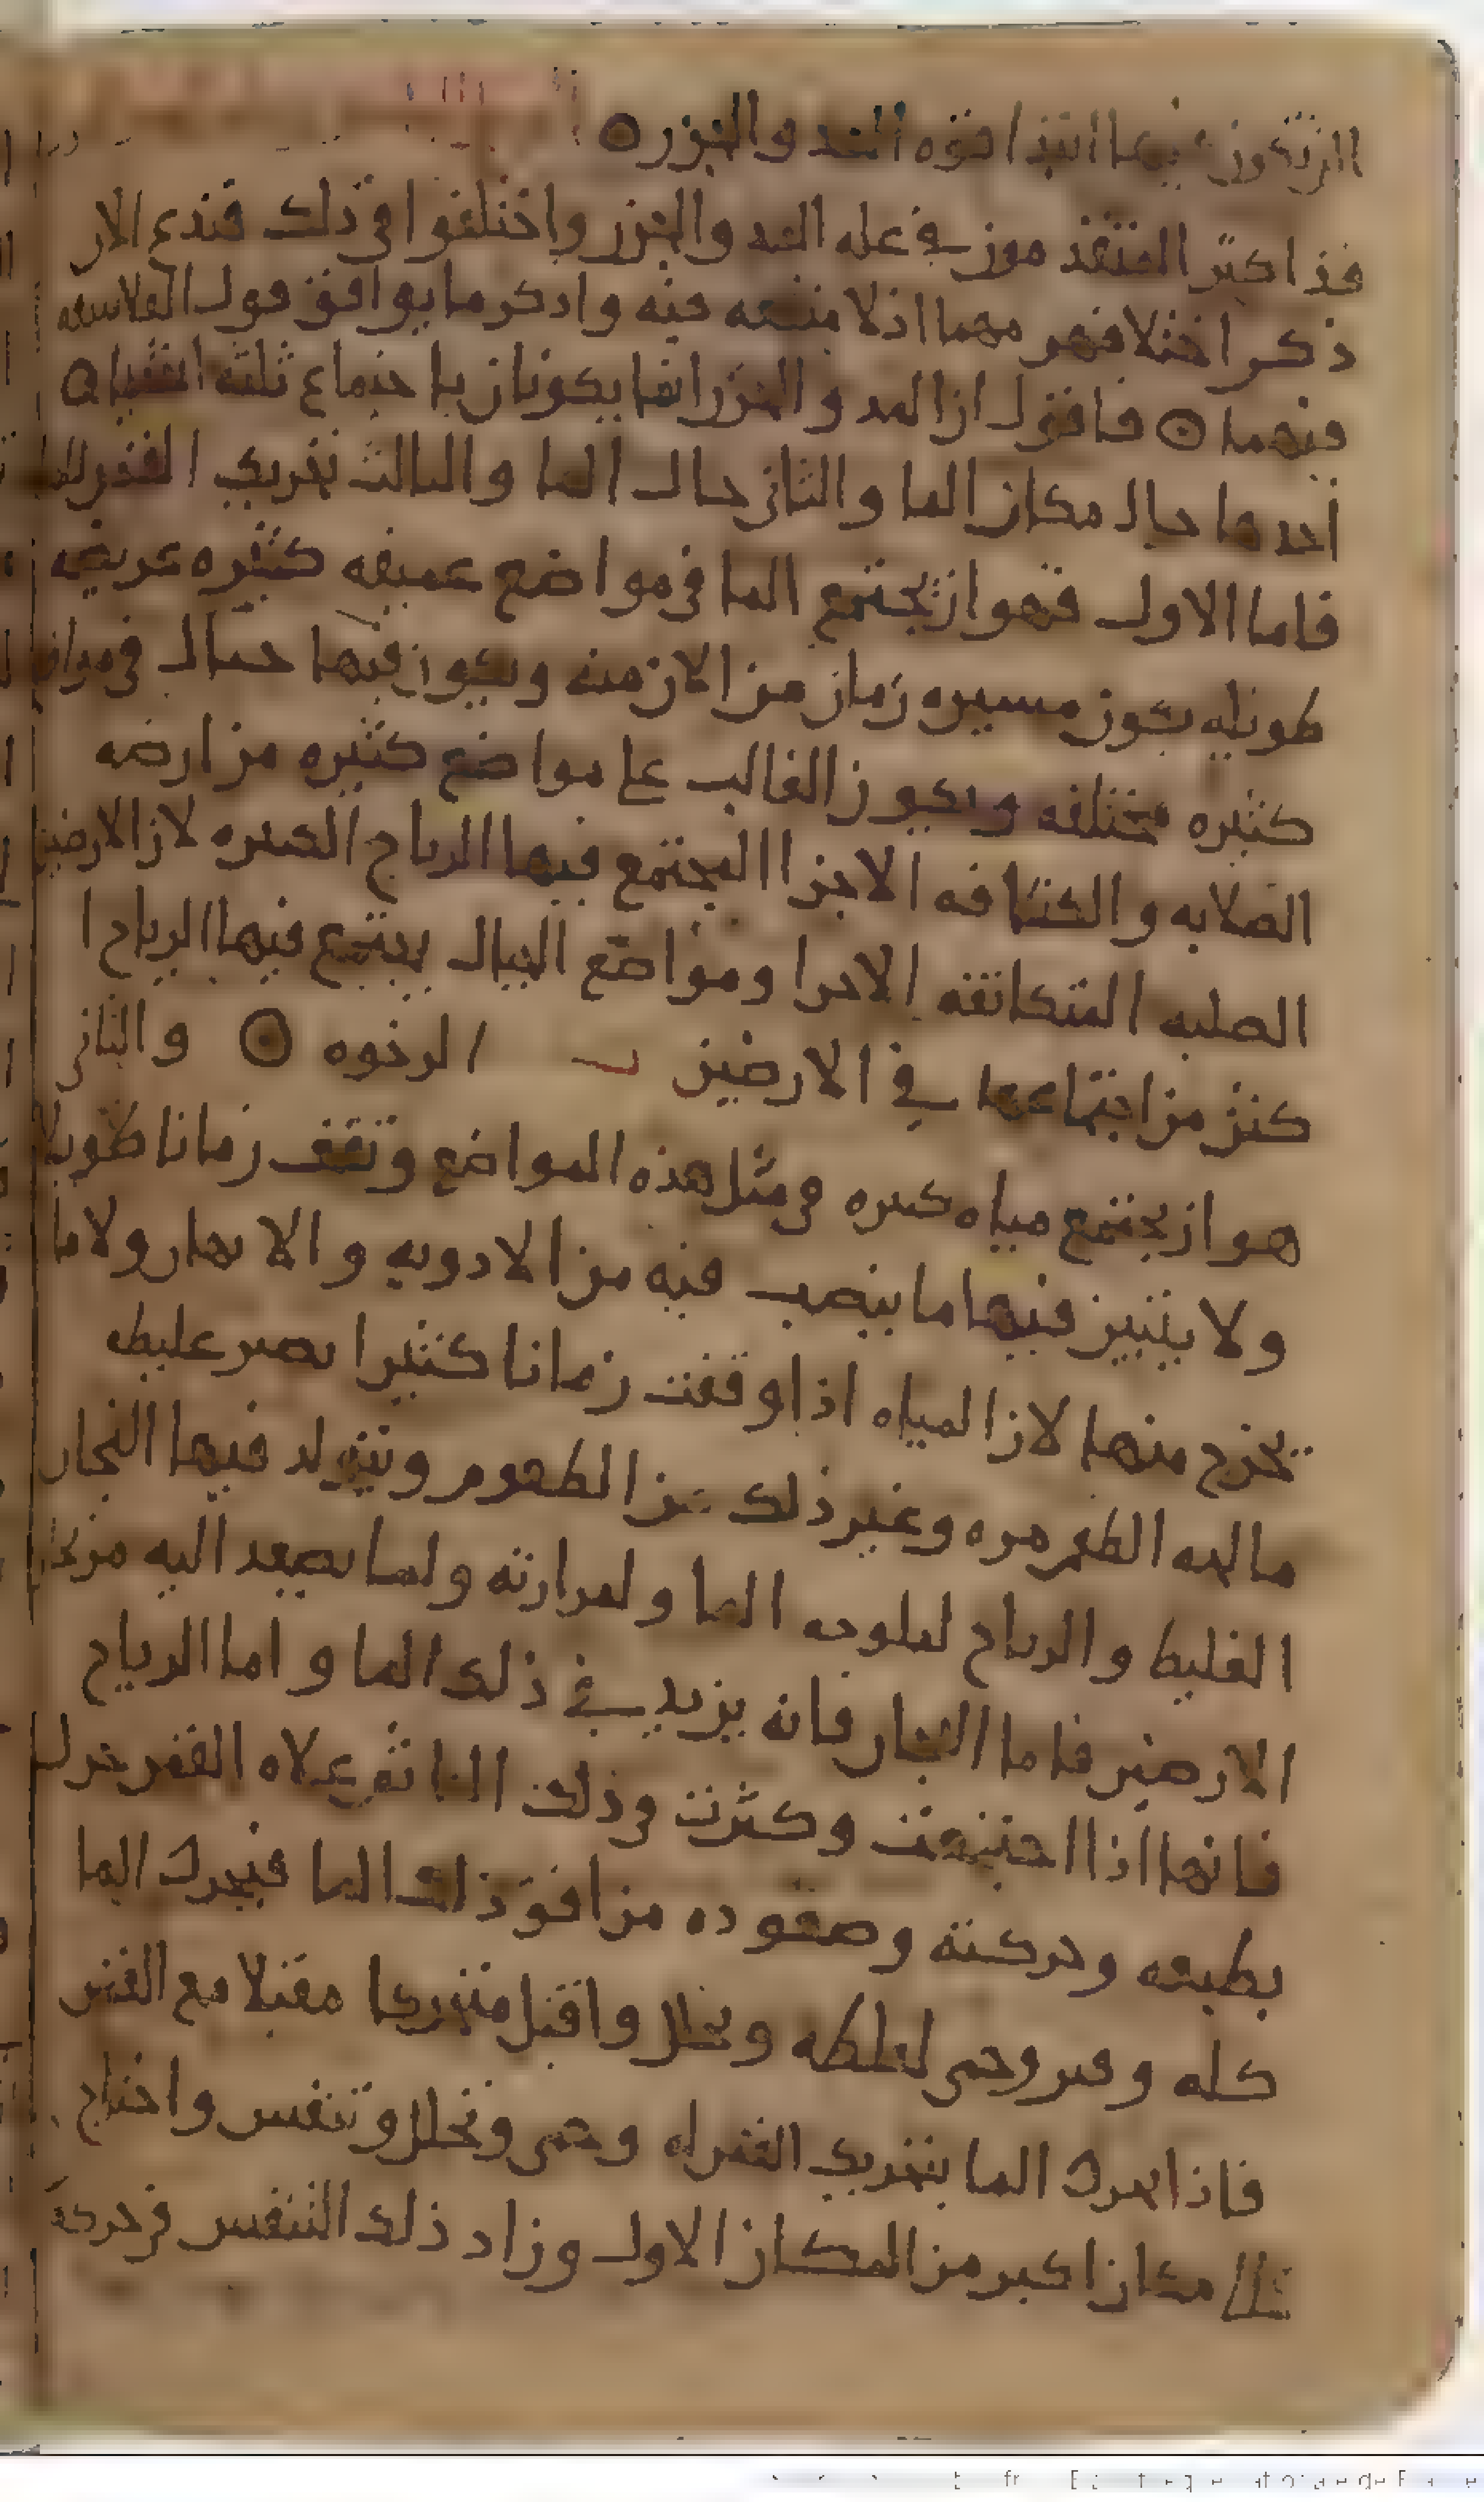 ان تكون فيما ابتدا قوه المد والجزر ○
قد اكثر المتقدمون في عله المد والجزر واختلفوا في ذلك فندع الان
ذكر اختلافهم مما اذ لا منفعه فيه واذكر ما يوافق قول الفلاسفه
فيهما ○ فاقول ان المد والجزر انما يكونان باجتماع ثلثه اشيا ○
احدها حال مكان الما والثاني حال الما والثالث تحريك القمر للما
فاما الاول فهو ان يجتمع الما في مواضع عميقه كثيره عريضه
طويله يكون مسيره زمان من الازمنه ويكون فيها جبال في مواضع
كثيره مختلفه ويكون الغالب على مواضع كثيره من ارضه
الصلابه والكثافه الاجزا المجتمع فيها الرياح الكثيره لان الارضين
الصلبه المتكاثفه الاجزا ومواضع الجبال يجتمع فيها الرياح ا
كثر من اجتماعها في الارضين الرخوه ○ والثاني
هو ان يجتمع مياه كثيره في مثل هذه المواضع وتقف زمانا طويلا
ولا يتبين فيها ما ينصب فيه من الاوديه والانهار ولا ما
يخرج منها لان المياه اذا وقفت زمانا كثيرا تصير غليظه
مالحه الطعم مره وغير ذلك من الطعوم ويتولد فيها البخار
الغليظ والرياح لملوحه الما ولمرارته ولما يصعد اليه من بخار
الارضين فاما البخار فانه يزيد في ذلك الما واما الرياح
فانها اذا اجتمعت وكثرت في ذلك الما ثم علاه القمر حرك
بطبعه وحركته وصعوده من افق ذلك الما فيحرك الما
كله وفتر وحمى لغلظه وتحلل واقبل متحركا مقبلا مع القمر
فاذا تحرك الما بتحريك القمر له وحمى وتحلل وتنفس واحتاج
الى مكان اكبر من المكان الاول وزاد ذلك التنفس في حركة